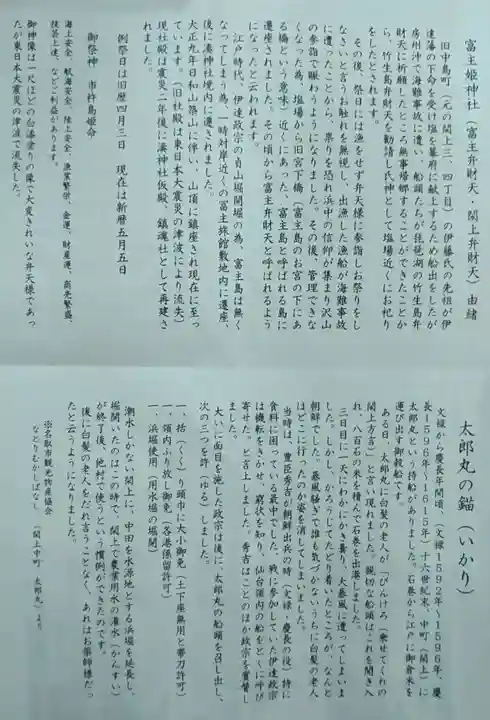 富主姫神社（富主弁財天・閖上弁財天）由緒
旧中島町（元の閖上三、四丁目）の伊藤氏の先祖が伊
達藩の下命を受け塩を幕府に献上するため船出をしたが
房州沖で海難事故に遭い、船頭たちが琵琶湖の竹生島弁
財天に祈願したところ無事帰郷することができたことか
ら、竹生島弁財天を勧請し氏神として塩場近くにお祀り
をしたとされます。
その後、祭日には漁をせず弁天様に参詣しお祭りをし
なさいと言うお触れを無視し、出漁した漁船が海難事故
に遭ったことから、祟りを恐れ浜中の信仰が集まり沢山
の参詣で賑わうようになりました。その後、管理できな
くなった為、塩場から旧宮下橋（富主島のお宮の下にあ
る橋という意味）近くにあった、富主島と呼ばれる島に
遷座されました。その頃から富主弁財天と呼ばれるよう
になったと云われます。
江戸時代、伊達政宗の貞山堀開堀の為、富主島は無く
なってしまう為、一時対岸近くの富主旅館敷地内に遷座、
後に湊神社境内に遷されました。
大正九年日和山築山に伴い、山頂に鎮座され現在に至っ
ています。（旧社殿は東日本大震災の津波により流失）
現社殿は震災二年後に湊神社仮殿、鎮魂社として再建さ
れました。
例祭日は旧暦四月三日　現在は新暦五月五日
御祭神　市杵島姫命
海上安全、航海安全、陸上安全、漁業繁栄、金運、財産運、商売繁盛、
技芸上達、などご利益があります。
御神像は一尺ほどの白漆塗りの像で大変きれいな弁天様であっ
たが東日本大震災の津波で流失した。
太郎丸の錨（いかり）
文禄から慶長年間頃、（文禄１５９２年～１５９６年、慶
長１５９６年～１６１５年）十六世紀末、中町（閖上）に
太郎丸という持船がありました。石巻から江戸に御倉米を
運び出す御穀船です。
ある日、太郎丸に白髪の老人が「びんけろ（乗せてくれの
閖上方言）」と言い現れました。親切な船頭はこれを聞き入
れ、八百石の米を積んで石巻を出港しました。
三日目に一天にわかにかき曇り、大暴風に遭ってしまいま
した。しかし、かろうじてたどり着いたところが、なんと
朝鮮でした。暴風騒ぎで誰も気づかないうちに白髪の老人
はどこに行ったのか姿を消してしまいました。
当時は、豊臣秀吉が朝鮮出兵の時（文禄・慶長の役）特に
食料に困っている最中でした。戦に参加していた伊達政宗
は機転をきかせ、窮状を知り、仙台領内の船をとくに呼び
寄せた。と言上しました。秀吉はことのほか政宗を賞賛し
ました。
大いに面目を施した政宗は後に、太郎丸の船頭を召し出し、
次の三つを許（ゆる）しました。
一、括（くく）り頭巾に大小御免（土下座無用と帯刀許可）
一、領内ふり放し御免（各港係留許可）
一、浜堀使用（用水堀の堀開）
潮水しかない閖上に、中田を水源地とする浜堀を延長し、
堀開いたのはこの時で、閖上で農業用水の灌水（かんすい）
が終了後、他村で使うという慣例ができたのです。
後に白髪の老人をだれ言うことなく、あれはお薬師様だっ
たと云うようになりました。
※名取市観光物産協会
なとりむかしばなし　「閖上中町　太郎丸」より